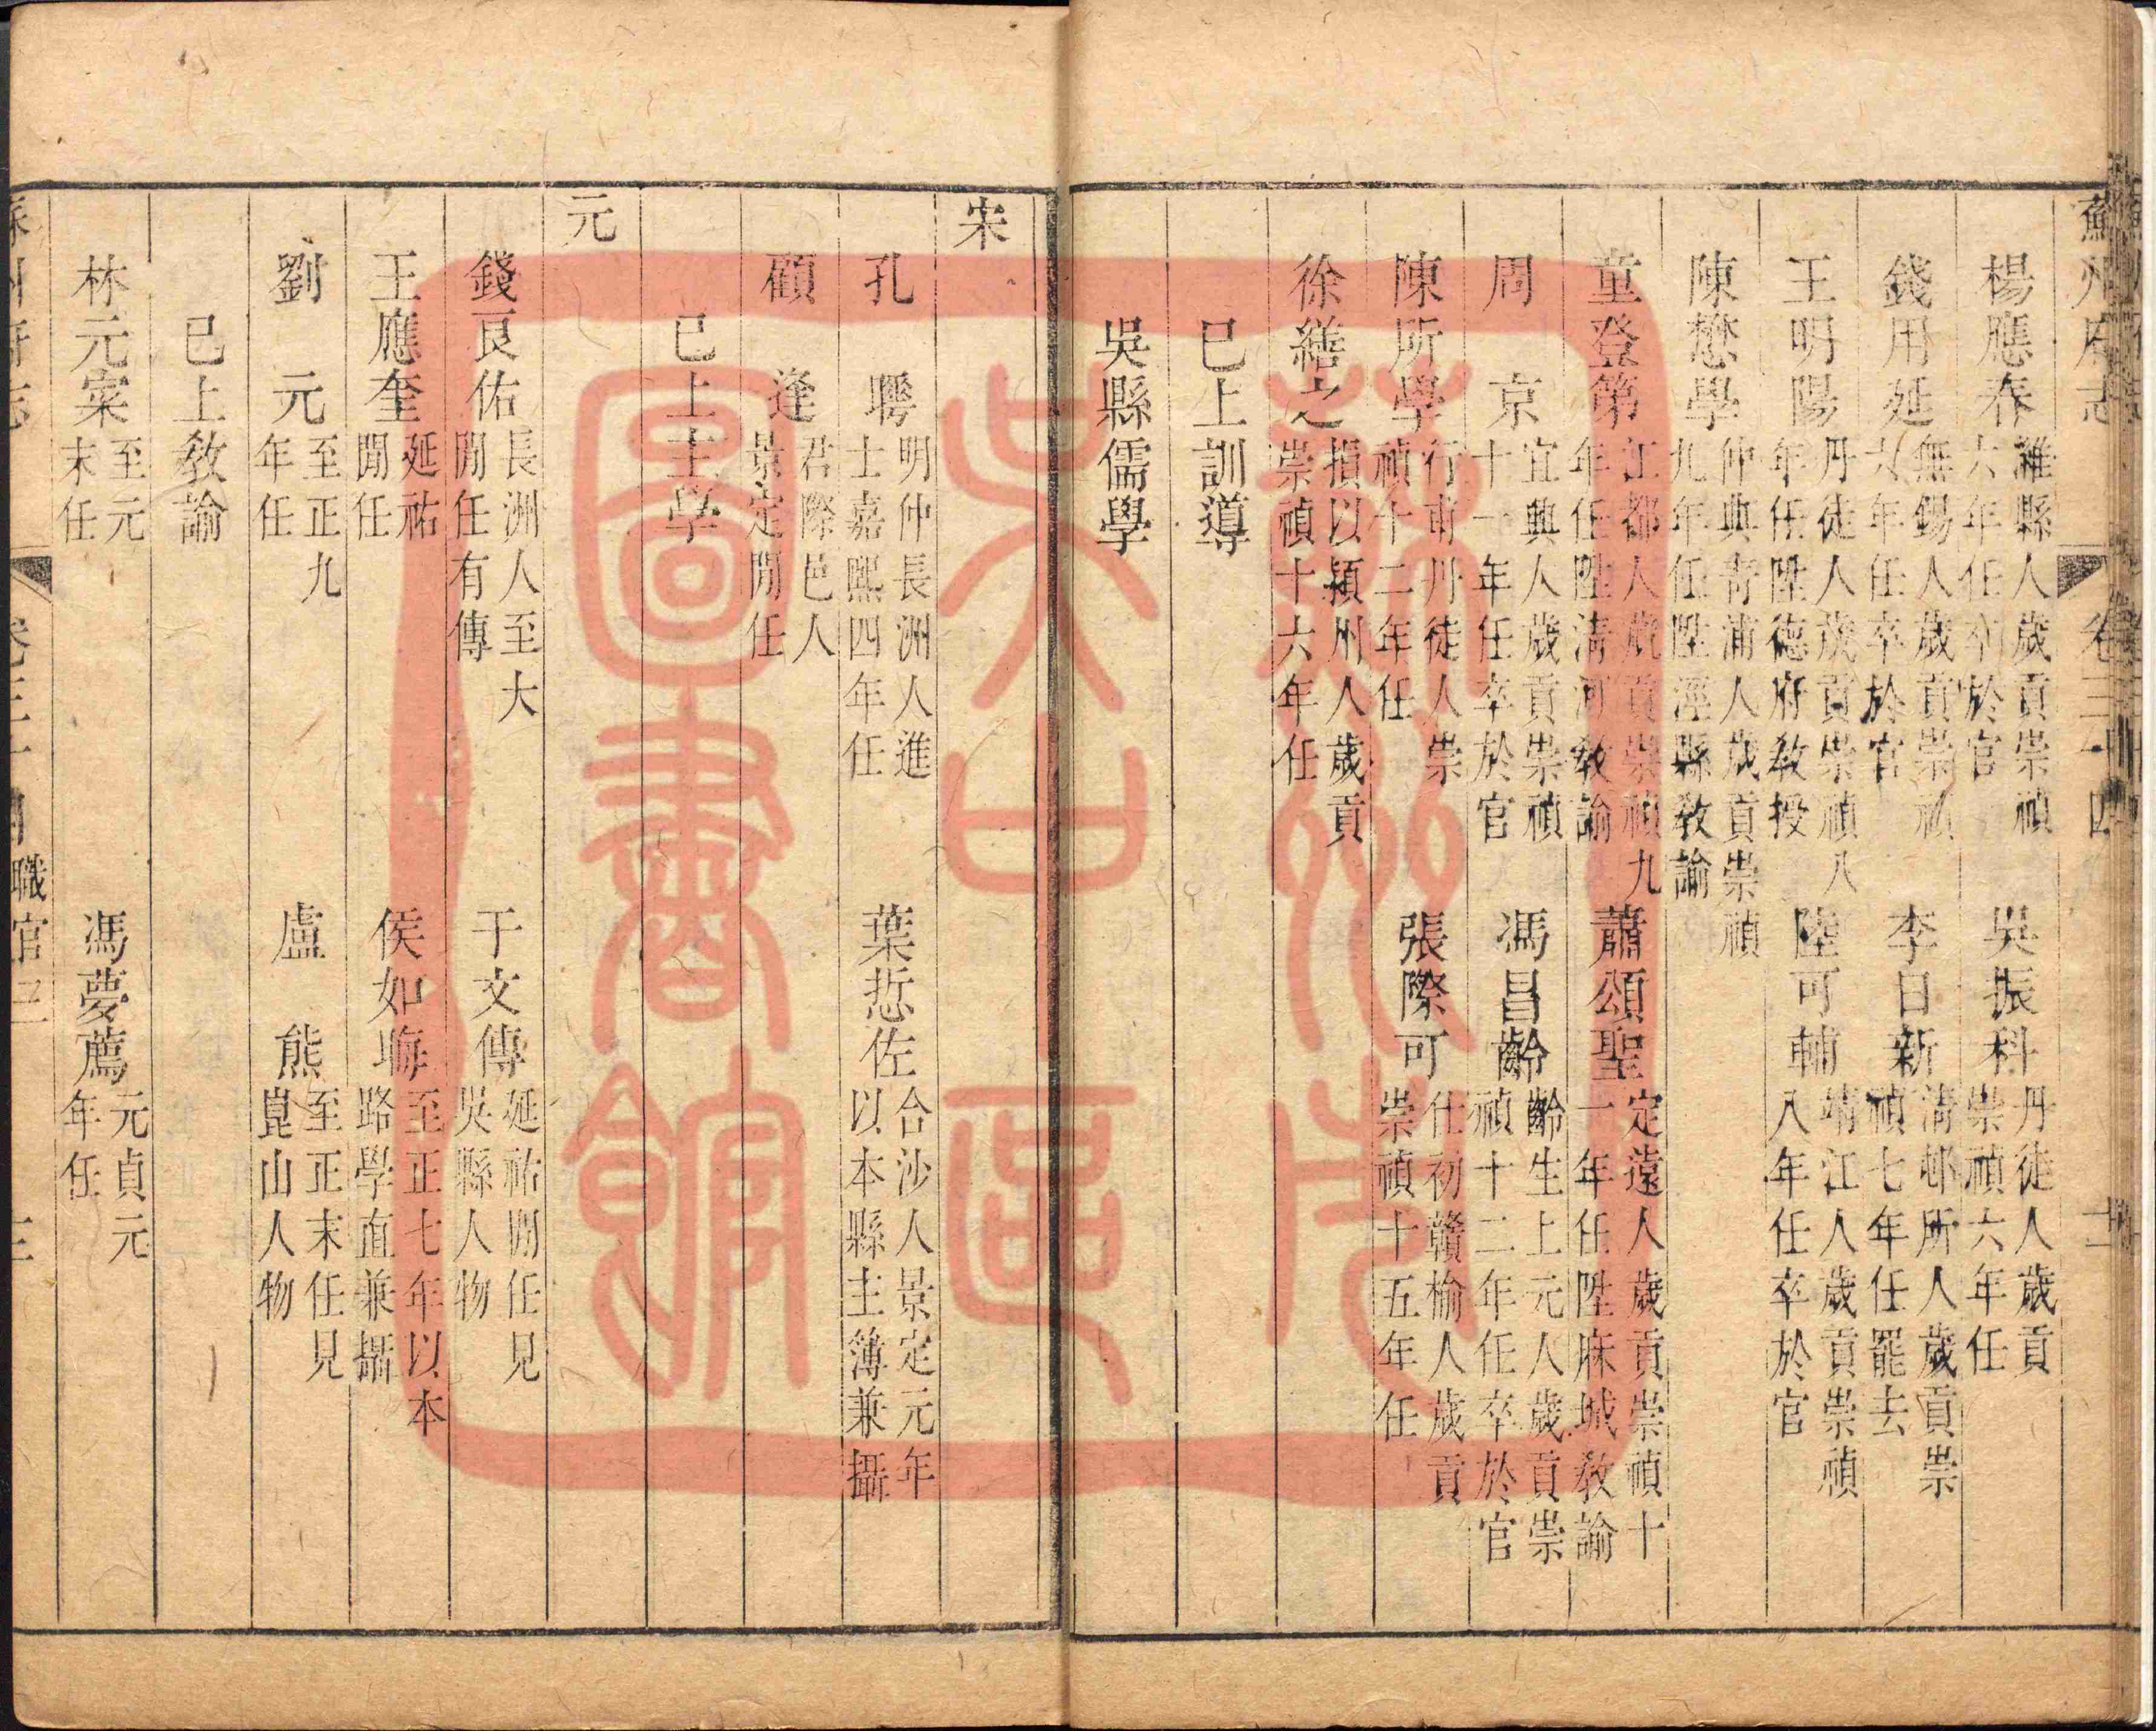 楊應春 濰縣人歲貢崇禎六年任卒於官 吳振科 丹徒人歲貢崇禎六年任
錢用延 無錫人歲貢崇禎六年任卒於官 李日新 清邨所人歲貢崇禎七年任罷去
王明陽 丹徒人歲貢崇禎八年任陞德府教授 陸可輔 靖江人歲貢崇禎八年任卒於官
陳懋學 仲典青浦人歲貢崇禎九年任陞涇縣教諭
童登第 江都人歲貢崇禎九年任陞清河教諭 蕭頌聖 定遠人歲貢崇禎十一年任陞麻城教諭
周京 宜興人歲貢崇禎十一年任卒於官 馮昌齡 齡生上元人歲貢崇禎十二年任卒於官
陳所學 行甫丹徒人崇禎十二年任 張際可 仕初贛榆人歲貢崇禎十五年任
徐繕之 損以潁州人歲貢崇禎十六年任
已上訓導
吳縣儒學
宋
孔聘 明仲長洲人進士嘉熙四年任 葉悊佐 合沙人景定元年以本縣主簿兼攝
顧逢 君際邑人景定間任
已上主學
元
錢良佑 長洲人至大間任有傳 于文傳 延祐間任見吳縣人物
王應奎 延祐間任 侯如晦 至正七年以本路學直兼攝
劉元 至正九年任 盧熊 至正末任見崑山人物
已上教諭
林元案 至元末任 馮夢薦 元貞元年任
職官三
蘇州大區
圖書館